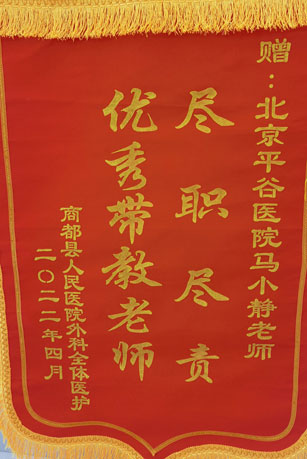 赠：北京平谷医院马小静老师
尽职尽责
优秀带教老师
商都县人民医院外科全体医护
二〇二二年四月